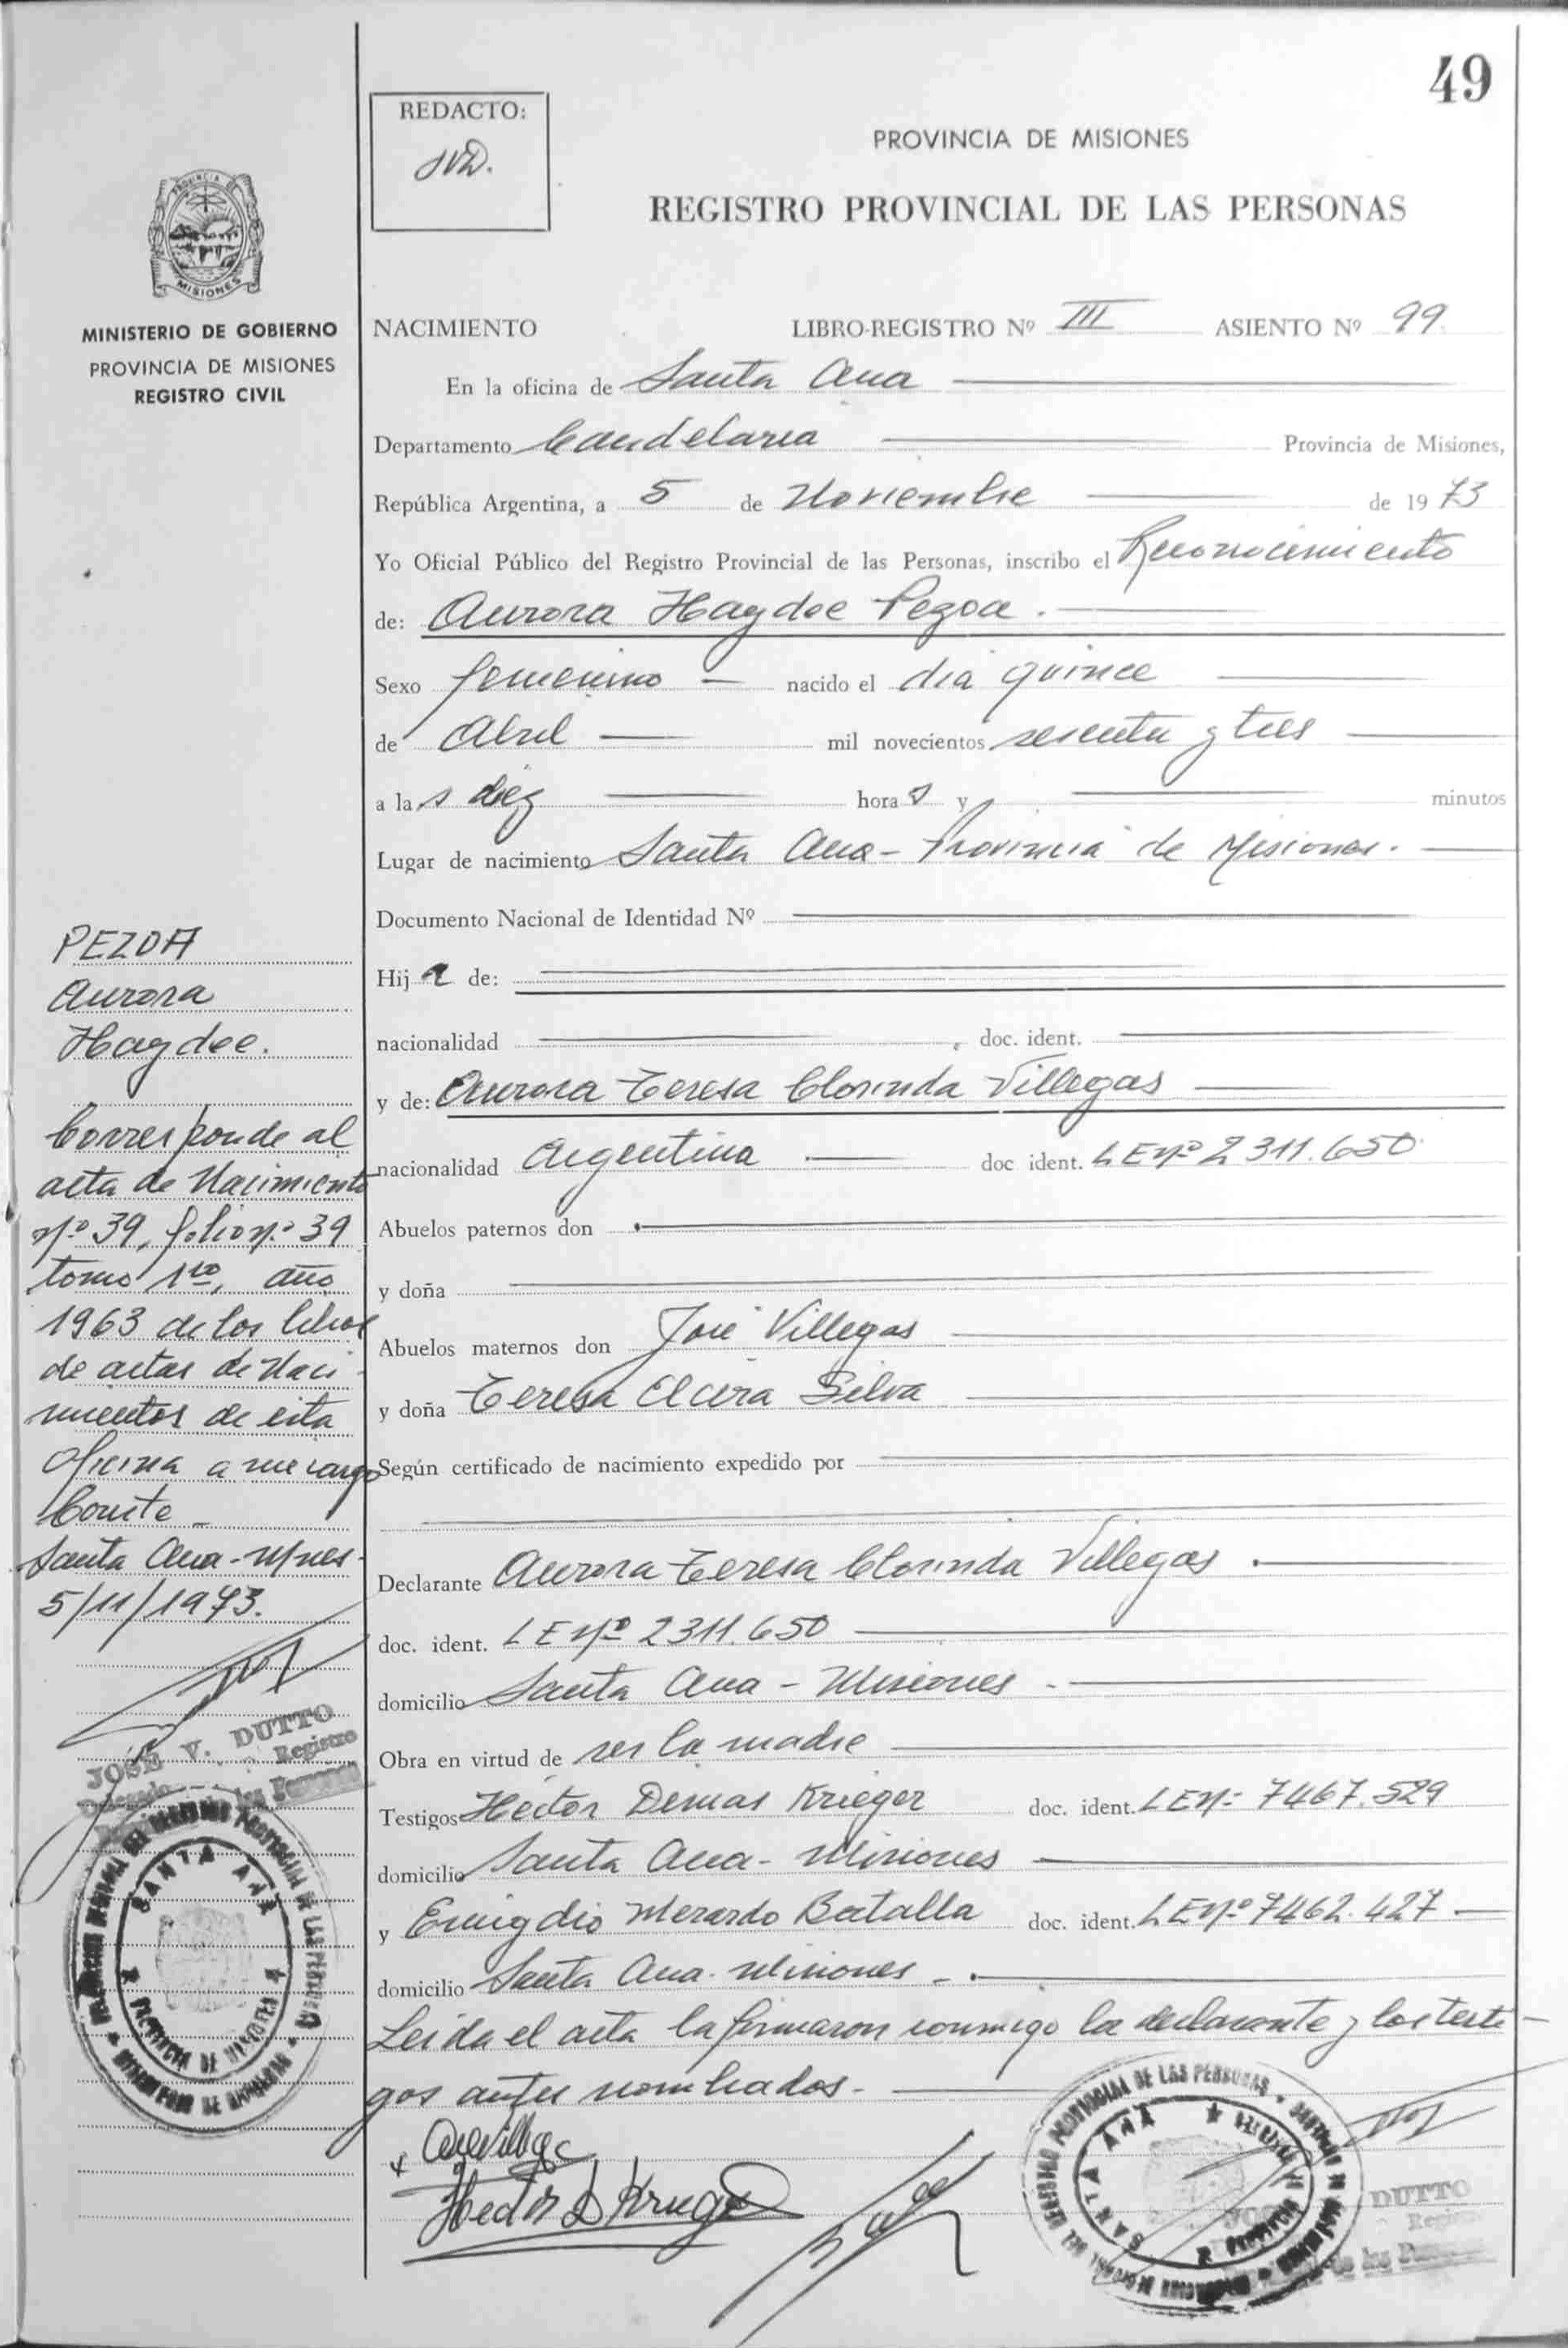 49
REDACTO:
PROVINCIA DE MISIONES
REGISTRO PROVINCIAL DE LAS PERSONAS
PROVINCIA DE
MISIONES
MINISTERIO DE GOBIERNO
PROVINCIA DE MISIONES
REGISTRO CIVIL
NACIMIENTO LIBRO-REGISTRO Nº III ASIENTO Nº 99
En la oficina de Santa Ana
Departamento Candelaria Provincia de Misiones,
República Argentina, a 5 de Noviembre de 1973
Yo Oficial Público del Registro Provincial de las Personas, inscribo el Reconocimiento
de: Aurora Haydee Pezoa.
Sexo femenino - nacido el dia quince
de Abril mil novecientos sesenta y tres
a las diez horas y minutos
Lugar de nacimiento Santa Ana - Provincia de Misiones.
Documento Nacional de Identidad Nº
Hija de:
nacionalidad , doc. ident.
y de: Aurora Teresa Clorinda Villegas
nacionalidad Argentina doc ident. LE Nº 2311.650
Abuelos paternos don
y doña
Abuelos maternos don José Villegas
y doña Teresa Elcira Silva
Según certificado de nacimiento expedido por
Declarante Aurora Teresa Clorinda Villegas.
doc. ident. LE Nº 2311.650
domicilio Santa Ana - Misiones -
Obra en virtud de ser la madre
Testigos Héctor Demas Krieger doc. ident. LE Nº 7467.529
domicilio Santa Ana - Misiones
y Emigdio Merardo Batalla doc. ident. LE Nº 7462.427
domicilio Santa Ana - Misiones -.
Leída el acta la firmaron conmigo la declarante y los testi-
gos antes nombrados-
Hector D Krieger
PEZOA
Aurora
Haydee.
Corresponde al
acta de Nacimiento
Nº 39, folio Nº 39
tomo 1ro, año
1963 de los libros
de actas de Naci-
mientos de esta
Oficina a mi cargo
Conste -
Santa Ana - Mnes -
5/11/1973.
JOSÉ V. DUTTO
Registro
de las Personas
SANTA ANA
PROVINCIA DE MISIONES
PROVINCIAL DE LAS PERSONAS
SANTA ANA
DUTTO